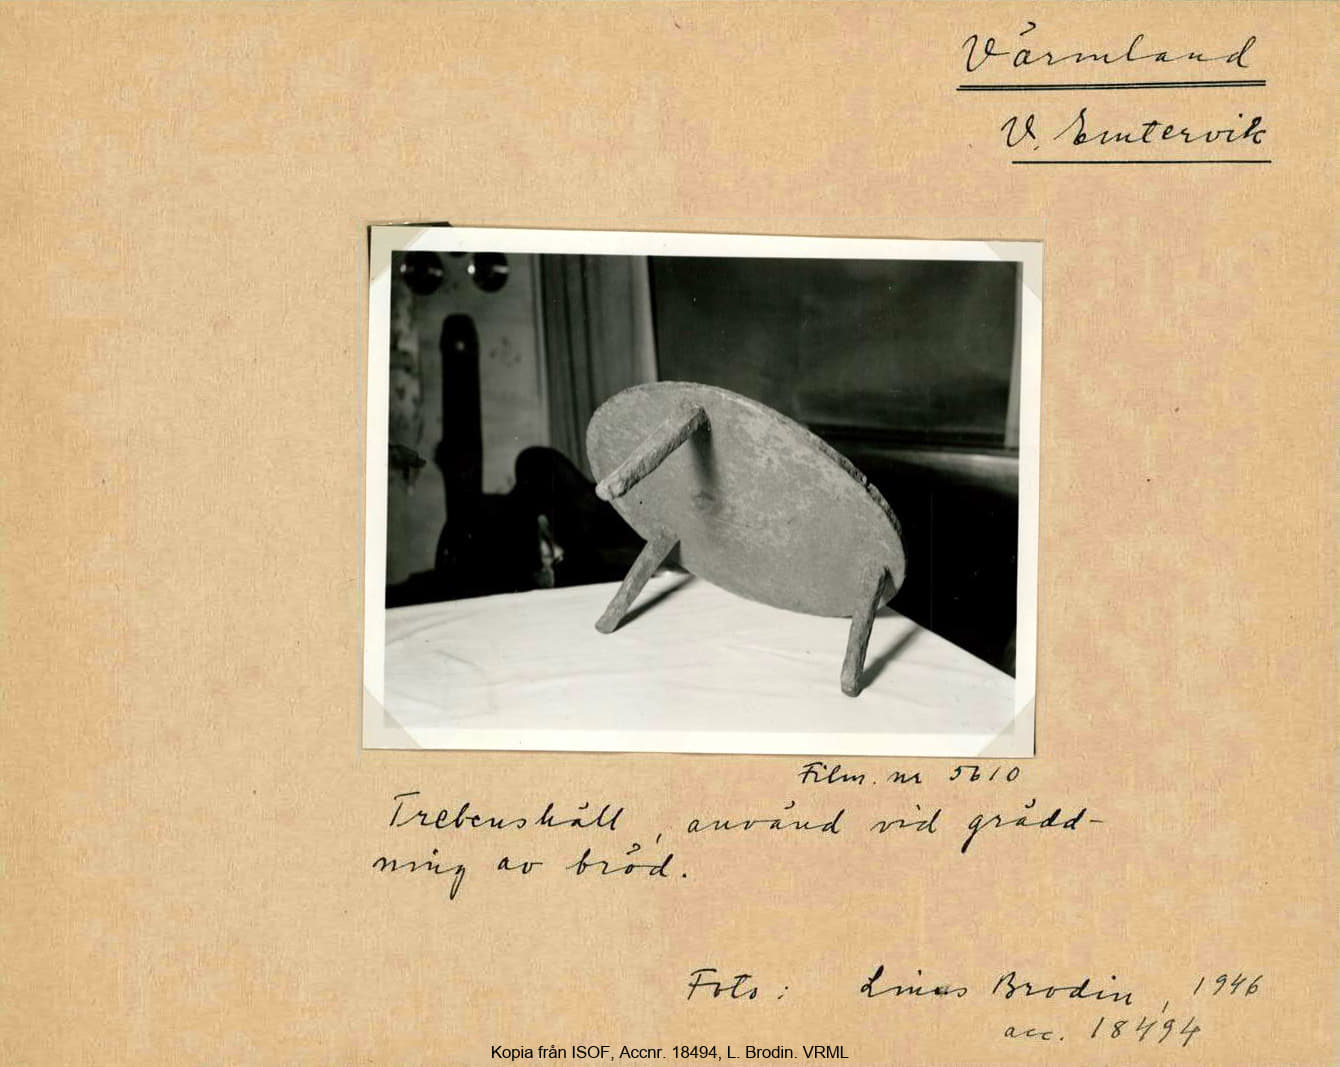 Värmland
V. Emtervik
Film. nr 5610
Trebenshäll, använd vid grädd-
ning av bröd.
Foto: Linus Brodin, 1946
acc. 18494
Kopia från ISOF, Accnr. 18494, L. Brodin. VRML